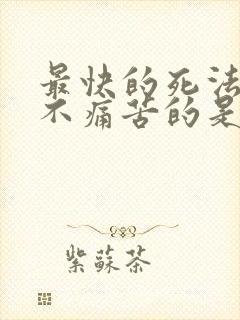 最快的死法
不痛苦的是
紫蘇茶